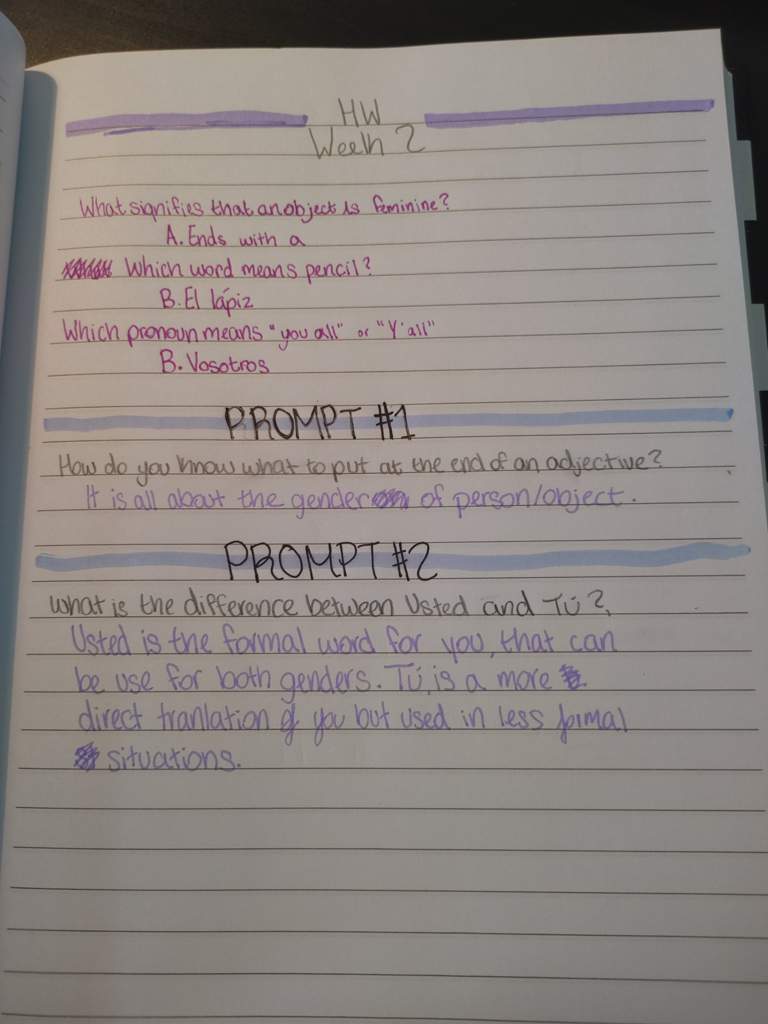 HW
Week 2
What signifies that an object is feminine?
A. Ends with a
Which word means pencil?
B. El lápiz
Which pronoun means "you all" or "Y'all"
B. Vosotros
PROMPT #1
How do you know what to put at the end of an adjective?
It is all about the gender of person/object.
PROMPT #2
What is the difference between Usted and Tú?
Usted is the formal word for you, that can
be use for both genders. Tú, is a more
direct tranlation of you but used in less formal
situations.